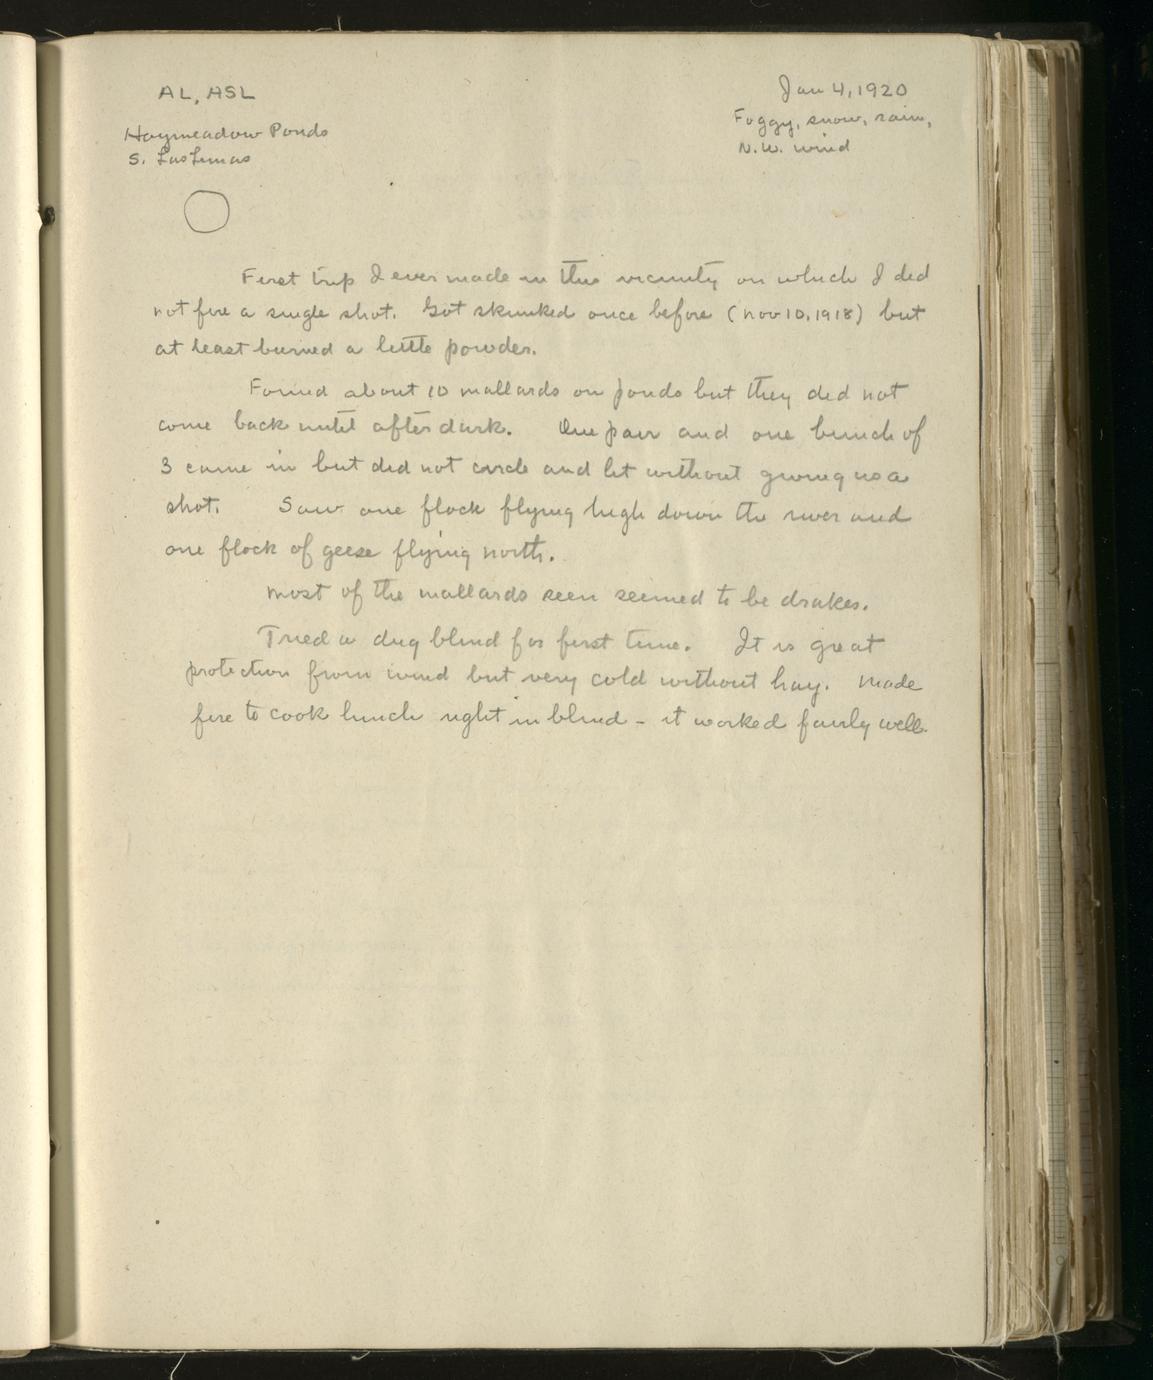 AL, ASL
Jan 4, 1920
Haymeadow Ponds
Foggy, snow, rain,
S. Las Lunas
N.W. wind
First trip I ever made in this vicinity on which I did
not fire a single shot. Got skunked once before (Nov 10, 1918) but
at least burned a little powder.
Found about 10 mallards on ponds but they did not
come back until after dark. One pair and one bunch of
3 came in but did not circle and lit without giving us a
shot. Saw one flock flying high down the river and
one flock of geese flying north.
Most of the mallards seen seemed to be drakes.
Tried a dug blind for first time. It is great
protection from wind but very cold without hay. Made
fire to cook lunch right in blind - it worked fairly well.